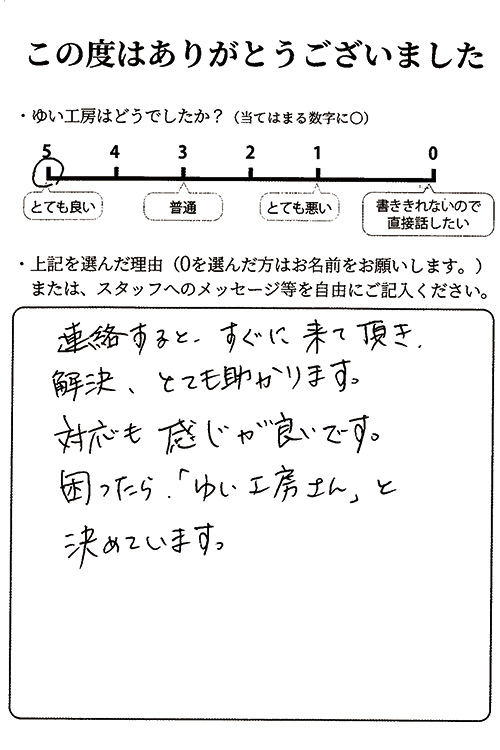 この度はありがとうございました
・ゆい工房はどうでしたか？（当てはまる数字に○）
5 4 3 2 1 0
とても良い 普通 とても悪い 書ききれないので
直接話したい
・上記を選んだ理由（0を選んだ方はお名前をお願いします。）
または、スタッフへのメッセージ等を自由にご記入ください。
連絡すると、すぐに来て頂き、
解決、とても助かります。
対応も感じが良いです。
困ったら、「ゆい工房さん」と
決めています。